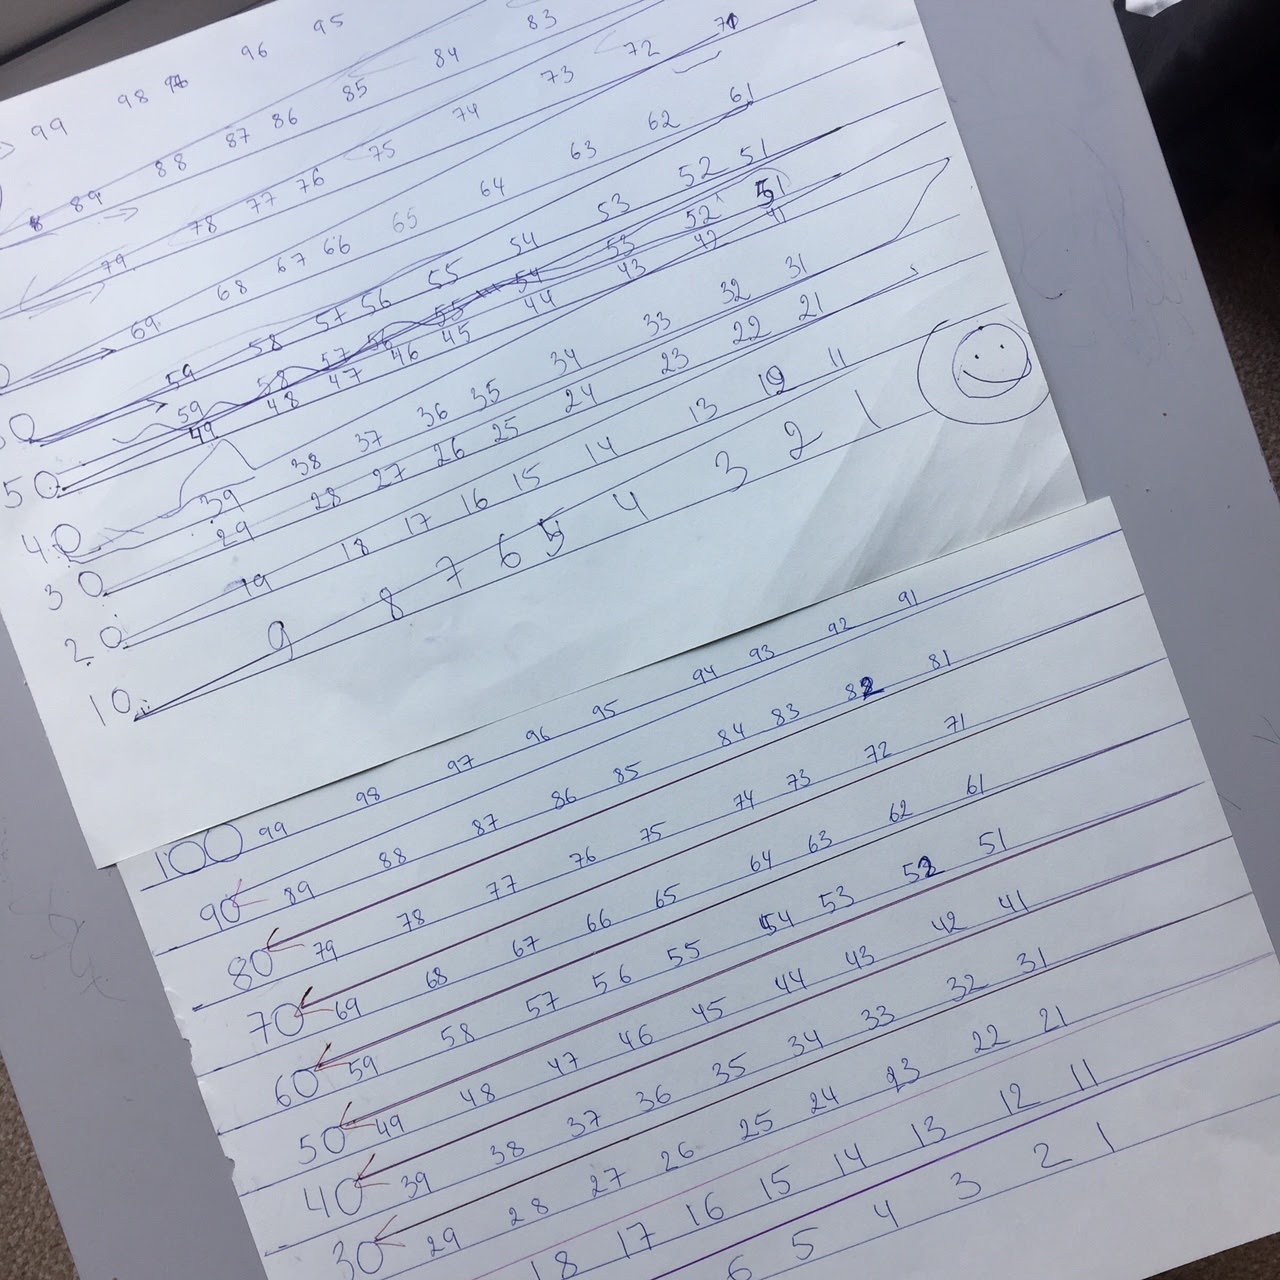 99 98 96 95
89 88 87 86 85 84 83
79 78 77 76 75 74 73 72 71
69 68 67 66 65 64 63 62 61
59 58 57 56 55 54 53 52 51
50 59 58 57 56 55 54 53 52 51
49 48 47 46 45 44 43 42 41
40 39 38 37 36 35 34 33 32 31
30 29 28 27 26 25 24 23 22 21
20 19 18 17 16 15 14 13 12 11
10 9 8 7 6 5 4 3 2 1
100 99 98 97 96 95 94 93 92 91
90 89 88 87 86 85 84 83 82 81
80 79 78 77 76 75 74 73 72 71
70 69 68 67 66 65 64 63 62 61
60 59 58 57 56 55 54 53 52 51
50 49 48 47 46 45 44 43 42 41
40 39 38 37 36 35 34 33 32 31
30 29 28 27 26 25 24 23 22 21
18 17 16 15 14 13 12 11
6 5 4 3 2 1